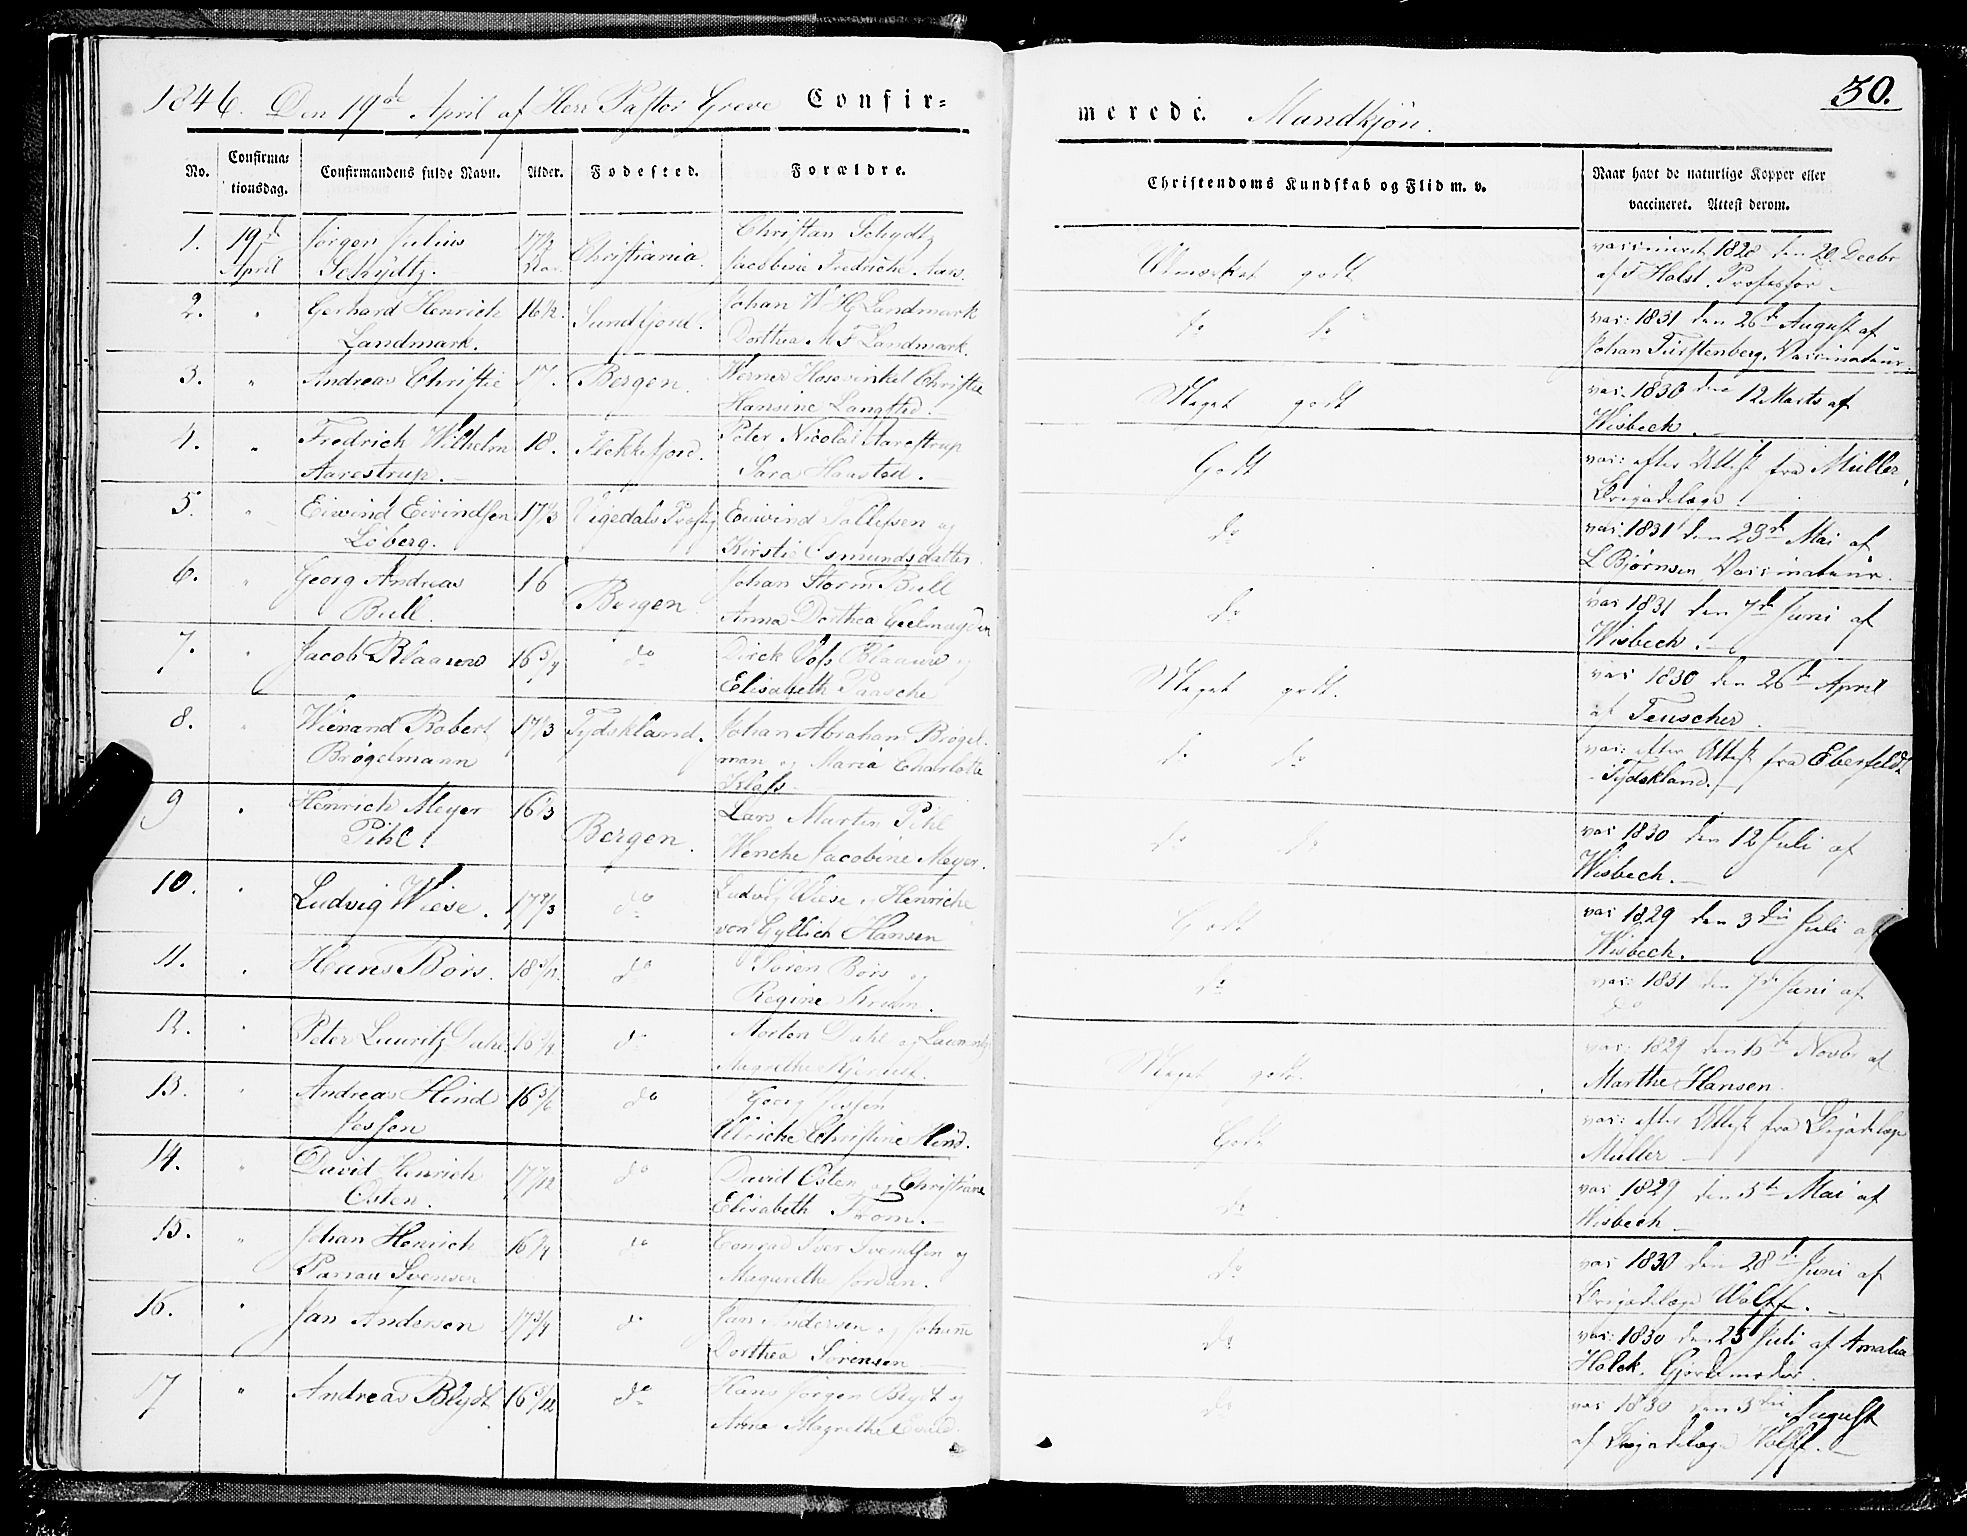 1846. Den 19de April af Herr Pastor Greve Confir=
merede. Mandkjön.
30.
No. Confirma= tionsdag. Confirmandens fulde Navn. Alder. Fødested. Forældre. Christendoms Kundskab og Flid m. v. Naar havt de naturlige Kopper eller vaccineret. Attest derom.
1. 19de Jørgen Julius 17 1/2 Christiania. Christian Schydtz Udmærket godt vaccineret 1828 den 20 Decbr
April Schydtz. Aar. Jacobine Fredriche Aars. af F Holst, Professor.
2. " Gerhard Henrich 16 1/2. Sundfjord. Johan W H Landmark do do vac: 1831 den 26de August af
Landmark. Dorthea M F Landmark. Johan Fürstenberg, Vaccinateur.
3. " Andreas Christie 17. Bergen. Werner Hosevinkel Christie Meget godt vac: 1830 den 12 Marts af
Hansine Langsted. Wisbech.
4. " Fredrich Wilhelm 18. Flekkefjord. Peter Nicolai Aarestrup Godt vac: efter Attest fra Müller,
Aarestrup. Sara Haasted. Brigadelæge.
5. " Eivind Eivindsen 17 1/3 Vigedals Præstg Eivind Tollefsen og do vac: 1831 den 29de Mai af
Löberg. Kirstie Osmundsdatter. L Bjørnsen, Vaccinateur.
6. " Georg Andreas 16 Bergen. Johan Storm Bull do vac 1831 den 7de Juni af
Bull. Anna Dorthea Geelmuyden Wisbech.
7. " Jacob Blaauw 16 3/4 do Dirck Vofs Blaauw og Meget godt. vac 1830 den 26de April
Elisabeth Paasche af Teuscher.
8. " Wienand Robert 17 1/3 Tydskland. Johan Abraham Brögel= do do vac: efter Attest fra Eberfeldt
Brögelmann man og Maria Charlotte Tydskland.
Klafs
9 " Henrich Meyer 16 1/3 Bergen. Lars Martin Pihl do do vac 1830 den 12 Juli af
Pihl. Wenche Jacobine Meyer. Wisbech.
10. " Ludvig Wiese. 17 2/3 do Ludvig Wiese, Henriche Godt vac 1829 den 3die Juli af
von Gyllich Hansen Wisbech.
11. " Hans Börs. do Sören Börs og do vac: 1831 den 7de Juni af
Regine Krohn. do
12. " Peter Lauritz Dahl 16 3/4 do Morten Dahl og Meget godt. vac: 1829 den de Novbr af
Magrethe Marthe Hansen.
13. " Andreas Hind do Georg Jessen Godt vac: efter Attest fra Brigadelæge
Jessen Ulriche Christine Hind. Müller
14. " David Henrich 17 1/12 do David Osten og Christiane do vac 1829 den 5te Mai af
Osten. Elisabeth From. Wisbech
15. " Johan Henrich 16 3/4 do Conrad Iver Svendsen og do vac 1830 den 28de Juni af
Svensen Magarethe Jordan. Brigadelæge Wolff.
16. " Jan Andersen 17 3/4 do Jan Andersen og Johanne do vac: 1830 den 25 Juli af Amalia
Dorthea Sörensen Holck, Gjordemoder.
17 " Andreas Blydt do Hans Jørgen Blydt og do vac 1830 den 3die August
Anne Magrethe af Brigadelæge Wolff.